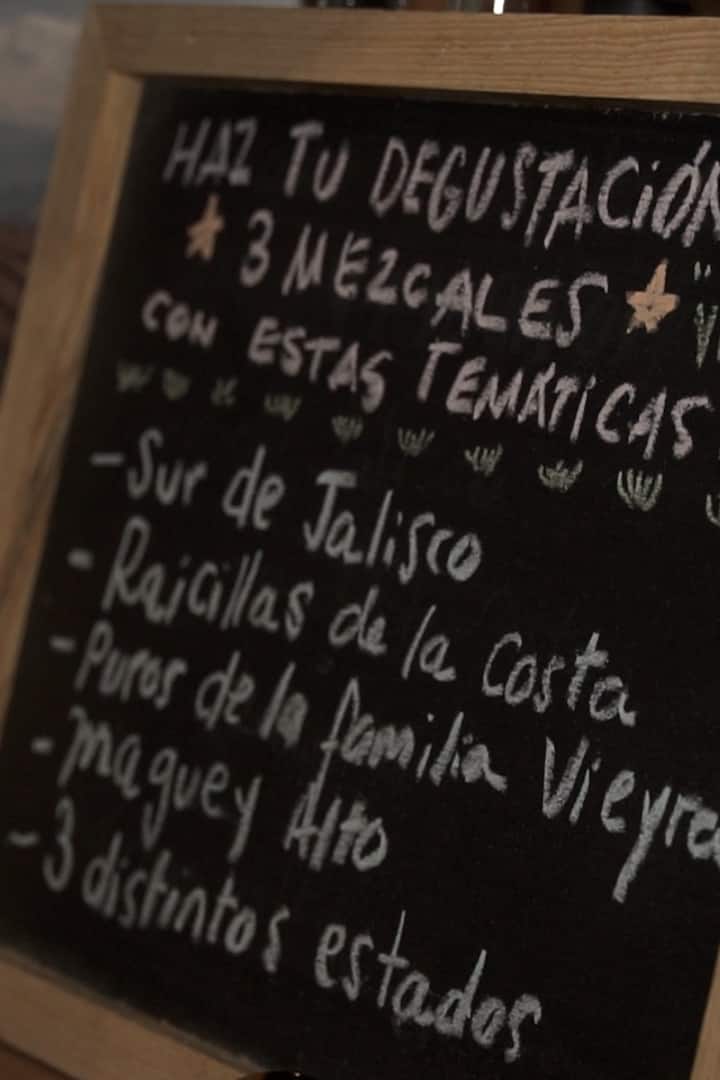 HAZ TU DEGUSTACIÓN
3 MEZCALES
CON ESTAS TEMÁTICAS
- Sur de Jalisco
- Raicillas de la Costa
- Puros de la familia Vieyra
- Maguey Alto
- 3 distintos estados